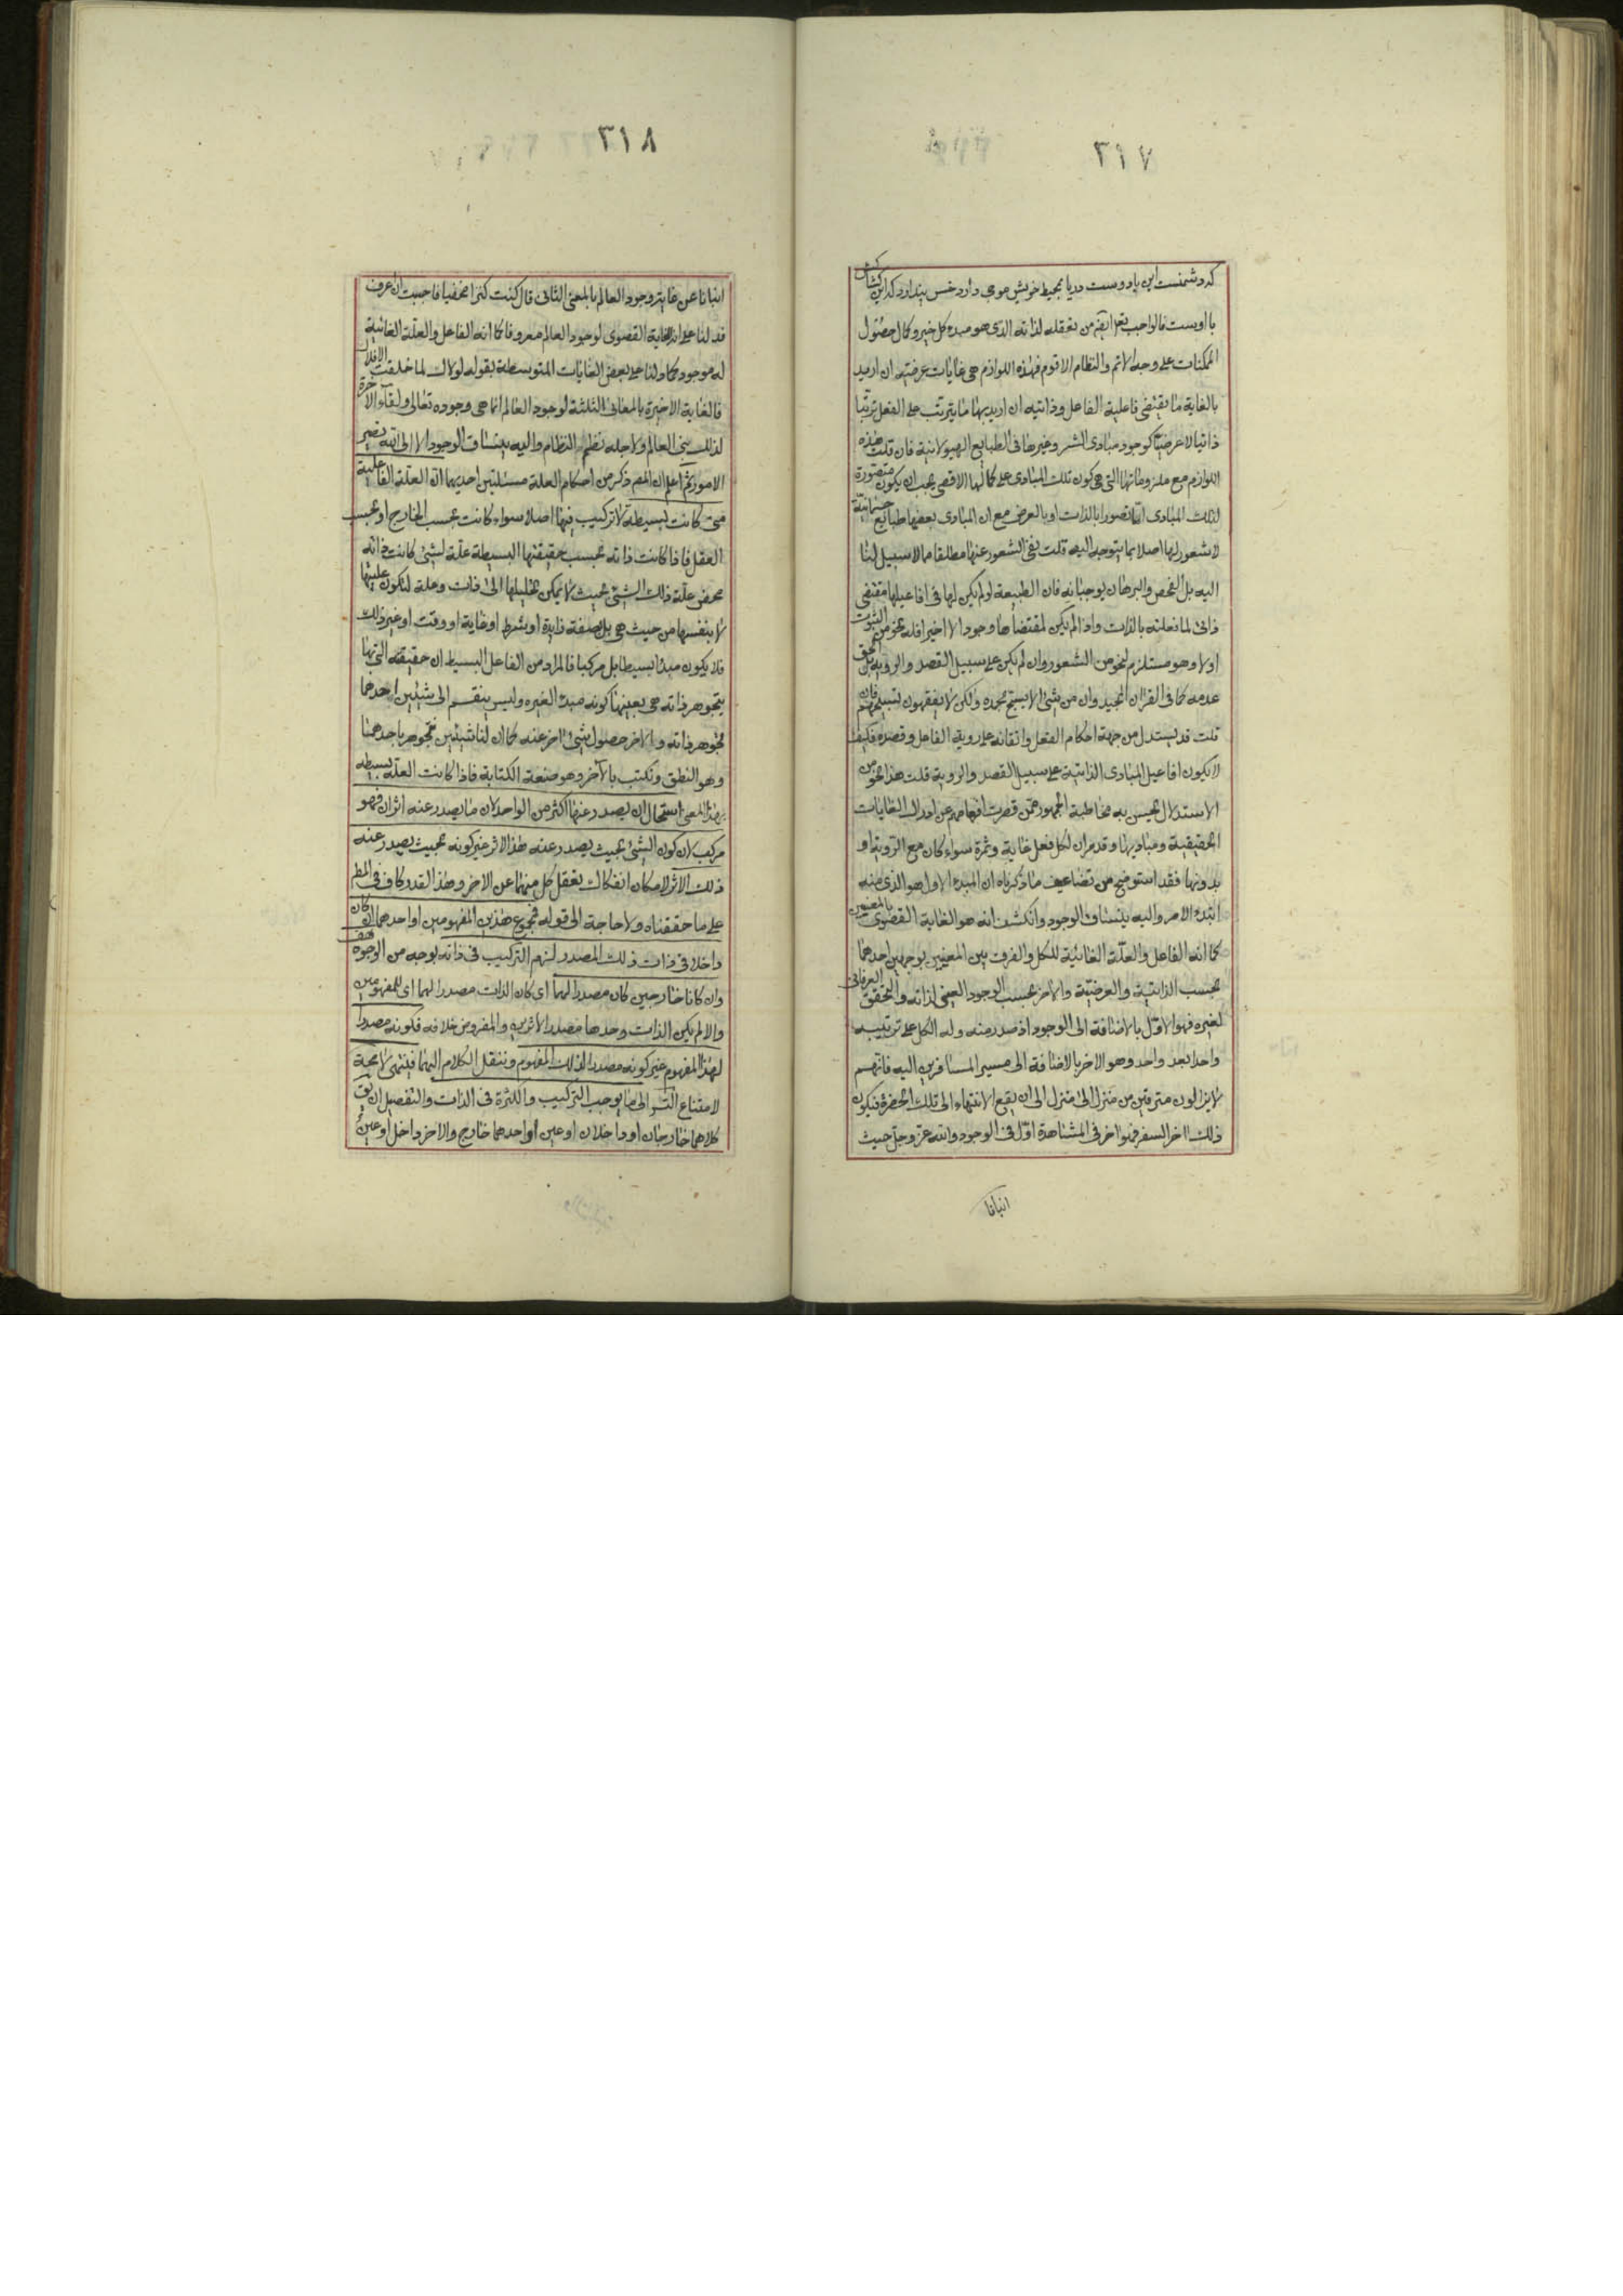 ٣١٧
که دشمنست این یا دوست دریا بمحیط خویش موجی دارد خس پندارد که این کشاکش
با اوست فالواجب تعالی یلزم من تعقله لذاته الذی هو مبدء کل خیر و کمال حصول
الممکنات علی وجه الاتم والنظام الاقوم فهذه اللوازم هی غایات عرضیه ان ارید
بالغایة ما یقتضی فاعلیة الفاعل وذاتیه ان ارید بها ما یترتب علی الفعل ترتبا
ذاتیا لا عرضیا کوجود مبادی الشر وغیرها فی الطبایع الهیولانیة فان قلت هذه
اللوازم مع ملزوماتها التی هی کون تلک المبادی علی کمالها الاقصی یجب ان یکون متصورة
لتلک المبادی اما تصورا بالذات او بالعرض مع ان المبادی بعضها طبایع جسمانیة
لا شعور لها اصلا بما یتوجه الیه قلت نفی الشعور عنها مطلقا مما لا سبیل لنا
الیه بل الفحص والبرهان یوجبانه فان الطبیعة لو لم یکن لها فی افاعیلها مقتضی
ذاتی لما فعلته بالذات واذا لم یکن لمقتضاها وجود الا اخیرا فله نحو من الثبوت
اولا وهو مستلزم لنحو من الشعور وان لم یکن علی سبیل القصد والرویة بل الحق
عدمه کما فی القرآن المجید وان من شیئ الا یسبح بحمده ولکن لا یفقهون تسبیحهم فان
قلت قد یستدل من جهة احکام الفعل واتقانه علی رویة الفاعل وقصده فکیف
لا یکون افاعیل المبادی الذاتیة علی سبیل القصد والرویة قلت هذا نحو من
الاستدلال یحسن به مخاطبة الجمهور ممن قصرت افهامهم عن ادراک الغایات
الحقیقیة ومبادیها وقد مر ان لکل فعل غایة وثمرة سواء کان مع الرویة او
بدونها فقد استوضح من تضاعیف ما ذکرناه ان المبدء الاول هو الذی منه
ابتدء الامر والیه ینساق الوجود وانکشف انه هو الغایة القصوی بالمعنیین
کما انه الفاعل والعلة الغائیة للکل والفرق بین المعنیین بوجهین احدهما
بحسب الذاتیة والعرضیة والاخر بحسب الوجود العینی لذاته والتحقق العرفانی
لغیره فهو الاول بالاضافة الی الوجود اذ صدر منه وله الکل علی ترتیبه
واحدا بعد واحد وهو الاخر بالاضافة الی مسیر المسافرین الیه فانهم
لا یزالون مترقین من منزل الی منزل الی ان یقع الانتهاء الی تلک الحضرة فیکون
ذلک اخر السفر فهو اخر فی المشاهدة اول فی الوجود والله عز وجل حیث
انبانا
٣١٨
انبانا عن غایة وجود العالم بالمعنی الثانی قال کنت کنزا مخفیا فاحببت ان اعرف
فدلنا علی انه الغایة القصوی لوجود العالم معروفا کما انه الفاعل والعلة الغائیة
له موجودا کما دلنا علی بعض الغایات المتوسطة بقوله لولاک لما خلقت الافلاک
فالغایة الاخیرة بالمعانی الثلثة لوجود العالم انما هی وجوده تعالی ولقاء الاخرة
لذلک بنی العالم ولاجله نظم النظام والیه ینساق الوجود الا الی الله تصیر
الامور ثم اعلم ان المص ذکر من احکام العلة مسئلتین احدیهما ان العلة الفاعلیة
متی کانت بسیطة لا ترکیب فیها اصلا سواء کانت بحسب الخارج او بحسب
العقل فاذا کانت ذاته بحسب حقیقتها البسیطة علة لشیئ کانت ذاته
محض علة ذلک الشیئ بحیث لا یمکن تحلیلها الی ذات وعلة لتکون علیتها
لا بنفسها من حیث هی بل بصفة زایدة او بشرط او غایة او وقت او غیر ذلک
فلا یکون مبدا بسیطا بل مرکبا فالمراد من الفاعل البسیط ان حقیقته التی بها
یتجوهر ذاته هی بعینها کونه مبدء الغیره ولیس ینقسم الی شیئین احدهما
تجوهر ذاته والاخر حصول شیئ اخر عنه کما ان لنا شیئین نتجوهر باحدهما
وهو النطق ونکتب بالآخر وهو صنعة الکتابة فاذا کانت العلة بسیطه
بهذا المعنی استحال ان یصدر عنها اکثر من الواحد لان ما یصدر عنه اثران فهو
مرکب لان کون الشیئ بحیث یصدر عنه هذا الاثر غیر کونه بحیث یصدر عنه
ذلک الاثر لامکان انفکاک تعقل کل منهما عن الاخر وهذا القدر کاف فی المط
علی ما حققناه ولا حاجة الی قوله فمجموع هذین المفهومین او احدهما ان کان
داخلا فی ذات ذلک المصدر لزم الترکیب فی ذاته بوجه من الوجوه هف
وان کانا خارجین کان مصدرا لهما ای کان الذات مصدرا لهما ای للمفهومین
والا لم یکن الذات وحدها مصدرا لاثرین والمفروض خلافه فکونه مصدرا
لهذا المفهوم غیر کونه مصدرا لذلک المفهوم وننقل الکلام الیهما فینتهی لا محة
لامتناع التس الی ما یوجب الترکیب والکثرة فی الذات والتفصیل ان یق
کلاهما خارجان او داخلان او عین او احدهما خارج والاخر داخل او عین